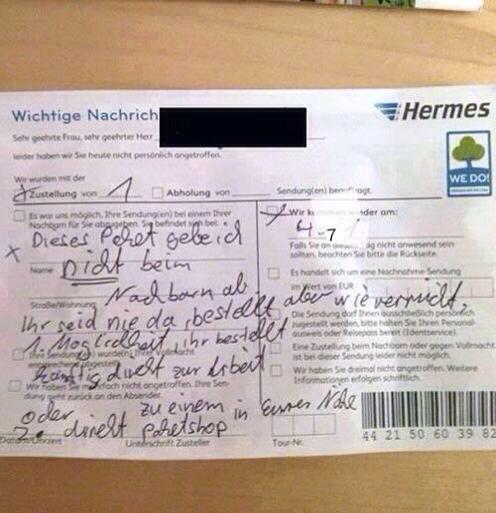 Wichtige Nachrich
Hermes
Sehr geehrte Frau, sehr geehrter Herr
leider haben wir Sie heute nicht persönlich angetroffen.
WE DO!
Wir wurden mit der
Zustellung von 1 Abholung von Sendung(en) beauftragt.
Es war uns möglich, Ihre Sendung(en) bei einem Ihrer
Nachbarn für Sie abzugeben. Sie befindet sich bei:
Wir kommen wieder am:
4 -7 1
Falls Sie an diesem Tag nicht anwesend sein
sollten, beachten Sie bitte die Rückseite.
Dieses Paket gebe ich
Name
nicht beim
Es handelt sich um eine Nachnahme-Sendung
im Wert von EUR
Straße/Wohnung
Nachbarn ab
Ihr seid nie da, bestellt aber wie verrückt.
Die Sendung darf Ihnen ausschließlich persönlich
zugestellt werden, bitte halten Sie Ihren Personal-
ausweis oder Reisepass bereit (Identservice).
1. Möglichkeit, ihr bestellt
Ihre Sendung(en) wurde(n)
Vollmacht
künftig direkt zur Arbeit
Eine Zustellung beim Nachbarn oder gegen Vollmacht
ist bei dieser Sendung leider nicht möglich.
Wir haben Sie
nicht angetroffen. Ihre Sen-
dung geht zurück an den Absender.
Wir haben Sie dreimal nicht angetroffen. Weitere
Informationen erfolgen schriftlich.
oder zu einem in Eurer Nähe
2. direkt Paketshop
Datum/Uhrzeit Unterschrift Zusteller Tour-Nr.
44 21 50 60 39 82